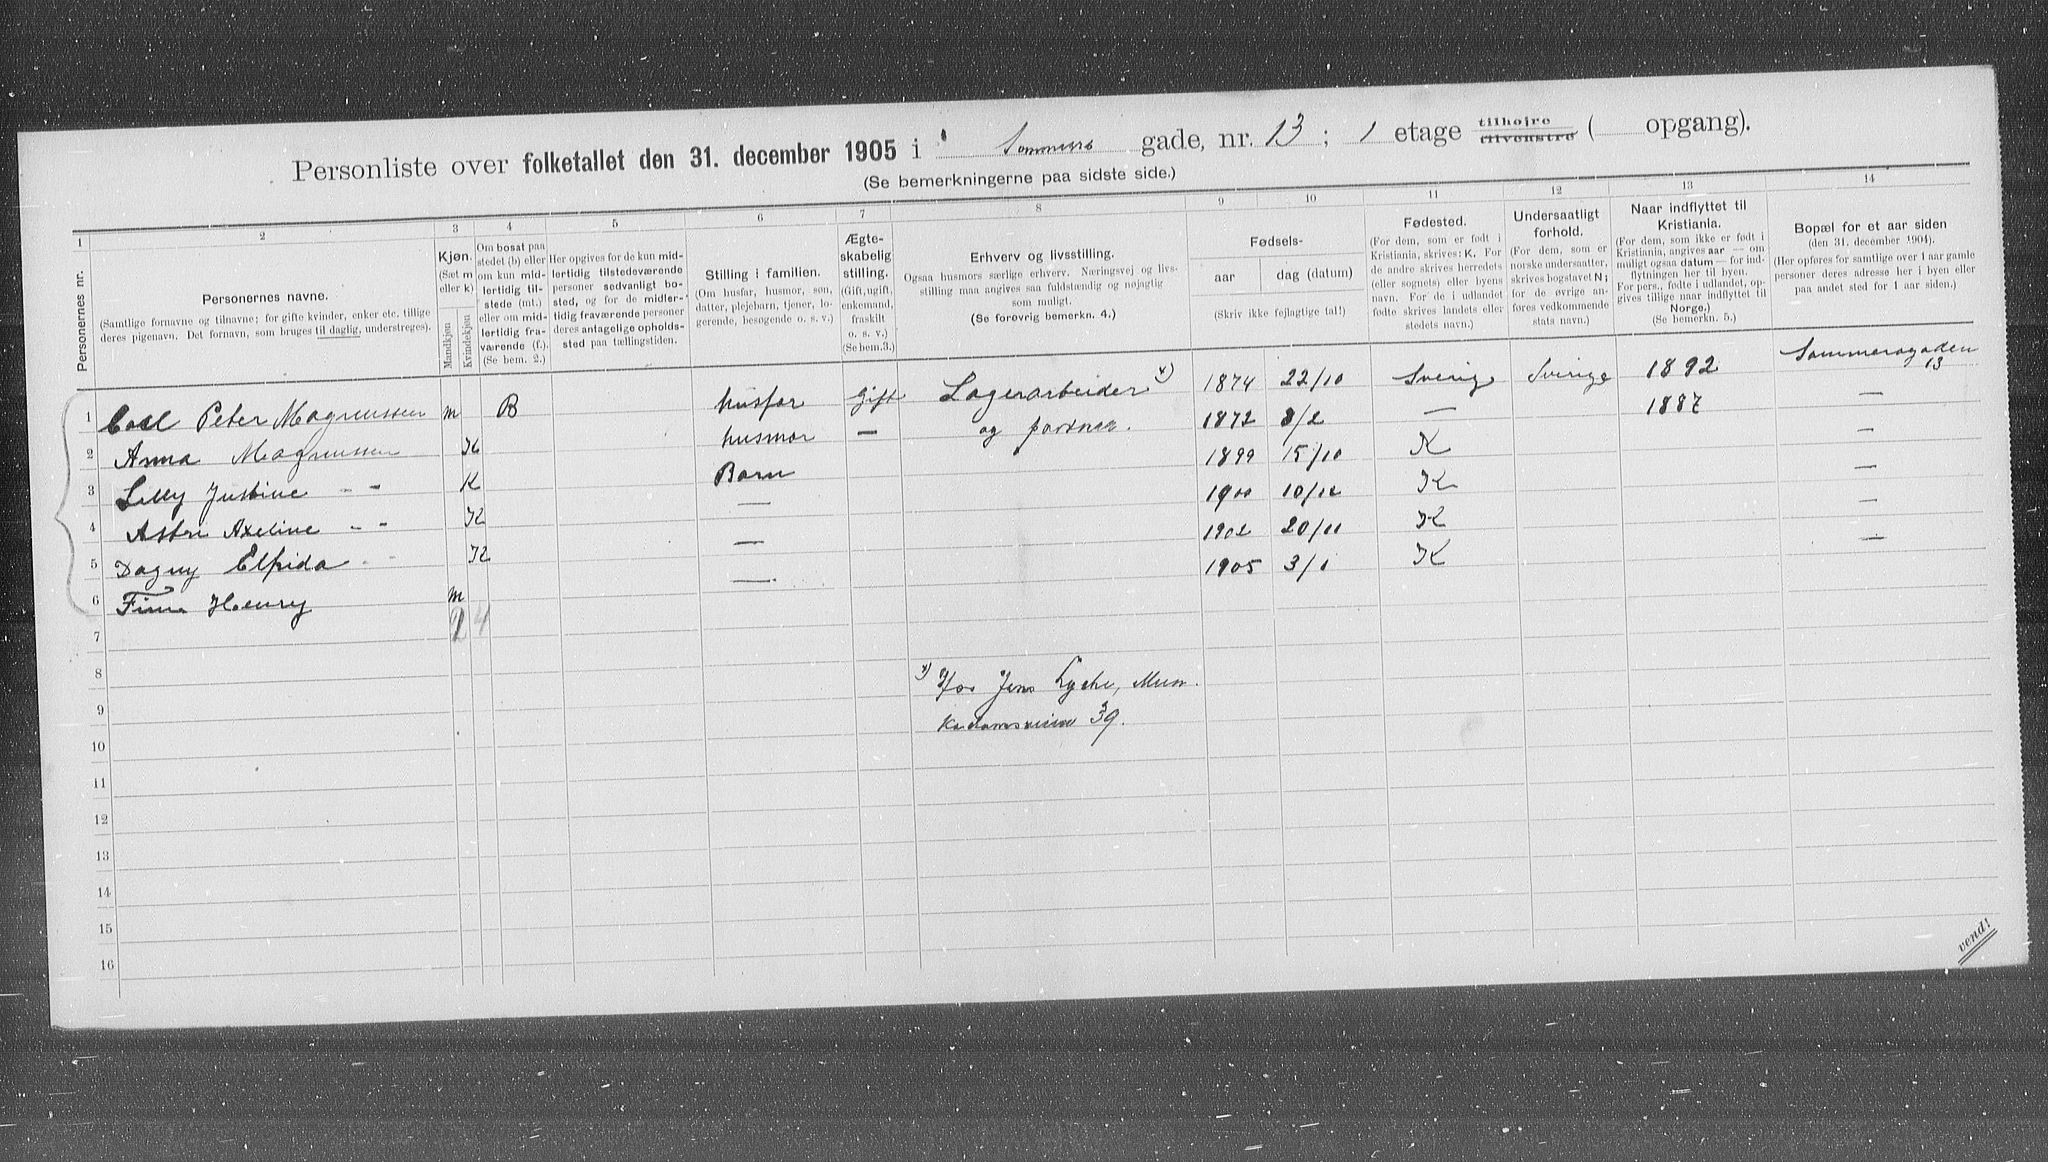 Personliste over folketallet den 31. december 1905 i Sommers gade, nr. 13; 1 etage tilhøjre tilvenstre ( opgang).
(Se bemerkningerne paa sidste side.)
1 2 3 4 5 6 7 8 9 10 11 12 13 14
Personernes nr.
Personernes navne.
(Samtlige fornavne og tilnavne; for gifte kvinder, enker etc. tillige
deres pigenavn. Det fornavn, som bruges til daglig, understreges).
Kjøn.
(Sæt m
eller k)
Mandkjøn
Kvindekjøn
Om bosat paa
stedet (b) eller
om kun mid-
lertidig til-
stede (mt.)
eller om mid-
lertidig fra-
værende (f.).
(Se bem. 2.)
Her opgives for de kun mid-
lertidig tilstedeværende
personer sedvanligt bo-
sted, og for de midler-
tidig fraværende personer
deres antagelige opholds-
sted paa tællingstiden.
Stilling i familien.
(Om husfar, husmor, søn,
datter, plejebarn, tjener, lo-
gerende, besøgende o. s. v.)
Ægte-
skabelig
stilling.
(Gift, ugift,
enkemand,
fraskilt
o. s. v.)
(Se bem.3.)
Erhverv og livsstilling.
Ogsaa husmors særlige erhverv. Næringsvej og livs-
stilling maa angives saa fuldstændig og nøjagtig
som muligt.
(Se forøvrig bemerkn. 4.)
Fødsels-
aar
dag (datum)
(Skriv ikke fejlagtige tal!)
Fødested.
(For dem, som er født i
Kristiania, skrives: K. For
de andre skrives herredets
(eller sognets) eller byens
navn. For de i udlandet
fødte skrives landets eller
stedets navn.)
Undersaatligt
forhold.
(For dem, som er
norske undersaatter,
skrives bogstavet N;
for de øvrige an-
føres vedkommende
stats navn.)
Naar indflyttet til
Kristiania.
(For dem, som ikke er født i
Kristiania, angives aar — om
muligt ogsaa datum — for ind-
flytningen her til byen.
For pers., fødte i udlandet, op-
gives tillige naar indflyttet til
Norge.)
(Se bemerkn. 5.)
Bopæl for et aar siden
(den 31. december 1904).
(Her opføres for samtlige over 1 aar gamle
personer deres adresse her i byen eller
paa andet sted for 1 aar siden.)
1 Carl Peter Magnussen m B husfar Gift Lagerarbeider x) 1874 22/10 Sverig Sverige 1892 Sommersgaden 13
2 Anna Magnussen K husmor — og 1872 8/2 — 1887 —
3 Lilly Justine - - K Barn 1899 15/10 K —
4 Axeline - - K — 1900 10/12 K —
5 Dagny Elfrida - K — 1902 20/11 K —
6 Finn Henry m — 1905 3/1 K
7 2 4
8
x) Hos Jens Lycke, Mun-
9
kedamsveien 39.
10
11
12
13
14
15
16
vend!